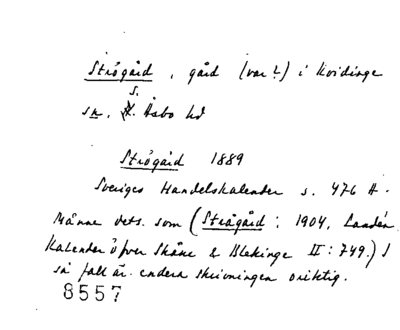 Strögård, gård (var?) i Kvidinge
s.
sn, N. Åsbo hd
Strögård 1889
Sveriges Handelskalender s. 476 H.
Månne dets. som (Strågård: 1904,
Kalender över Skåne & Blekinge II: 749.) I
så fall är endera skrivningen oriktig.
8557